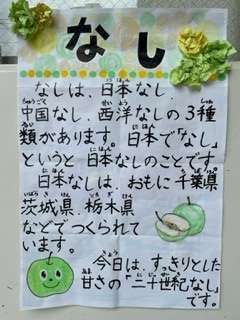 なし
なしは、日本なし、
中国なし、西洋なしの3種
類があります。日本で「なし」
というと日本なしのことです。
日本なしは、おもに千葉県、
茨城県、栃木県
などでつくられて
います。
今日は、すっきりとした
甘さの「二十世紀なし」
です。